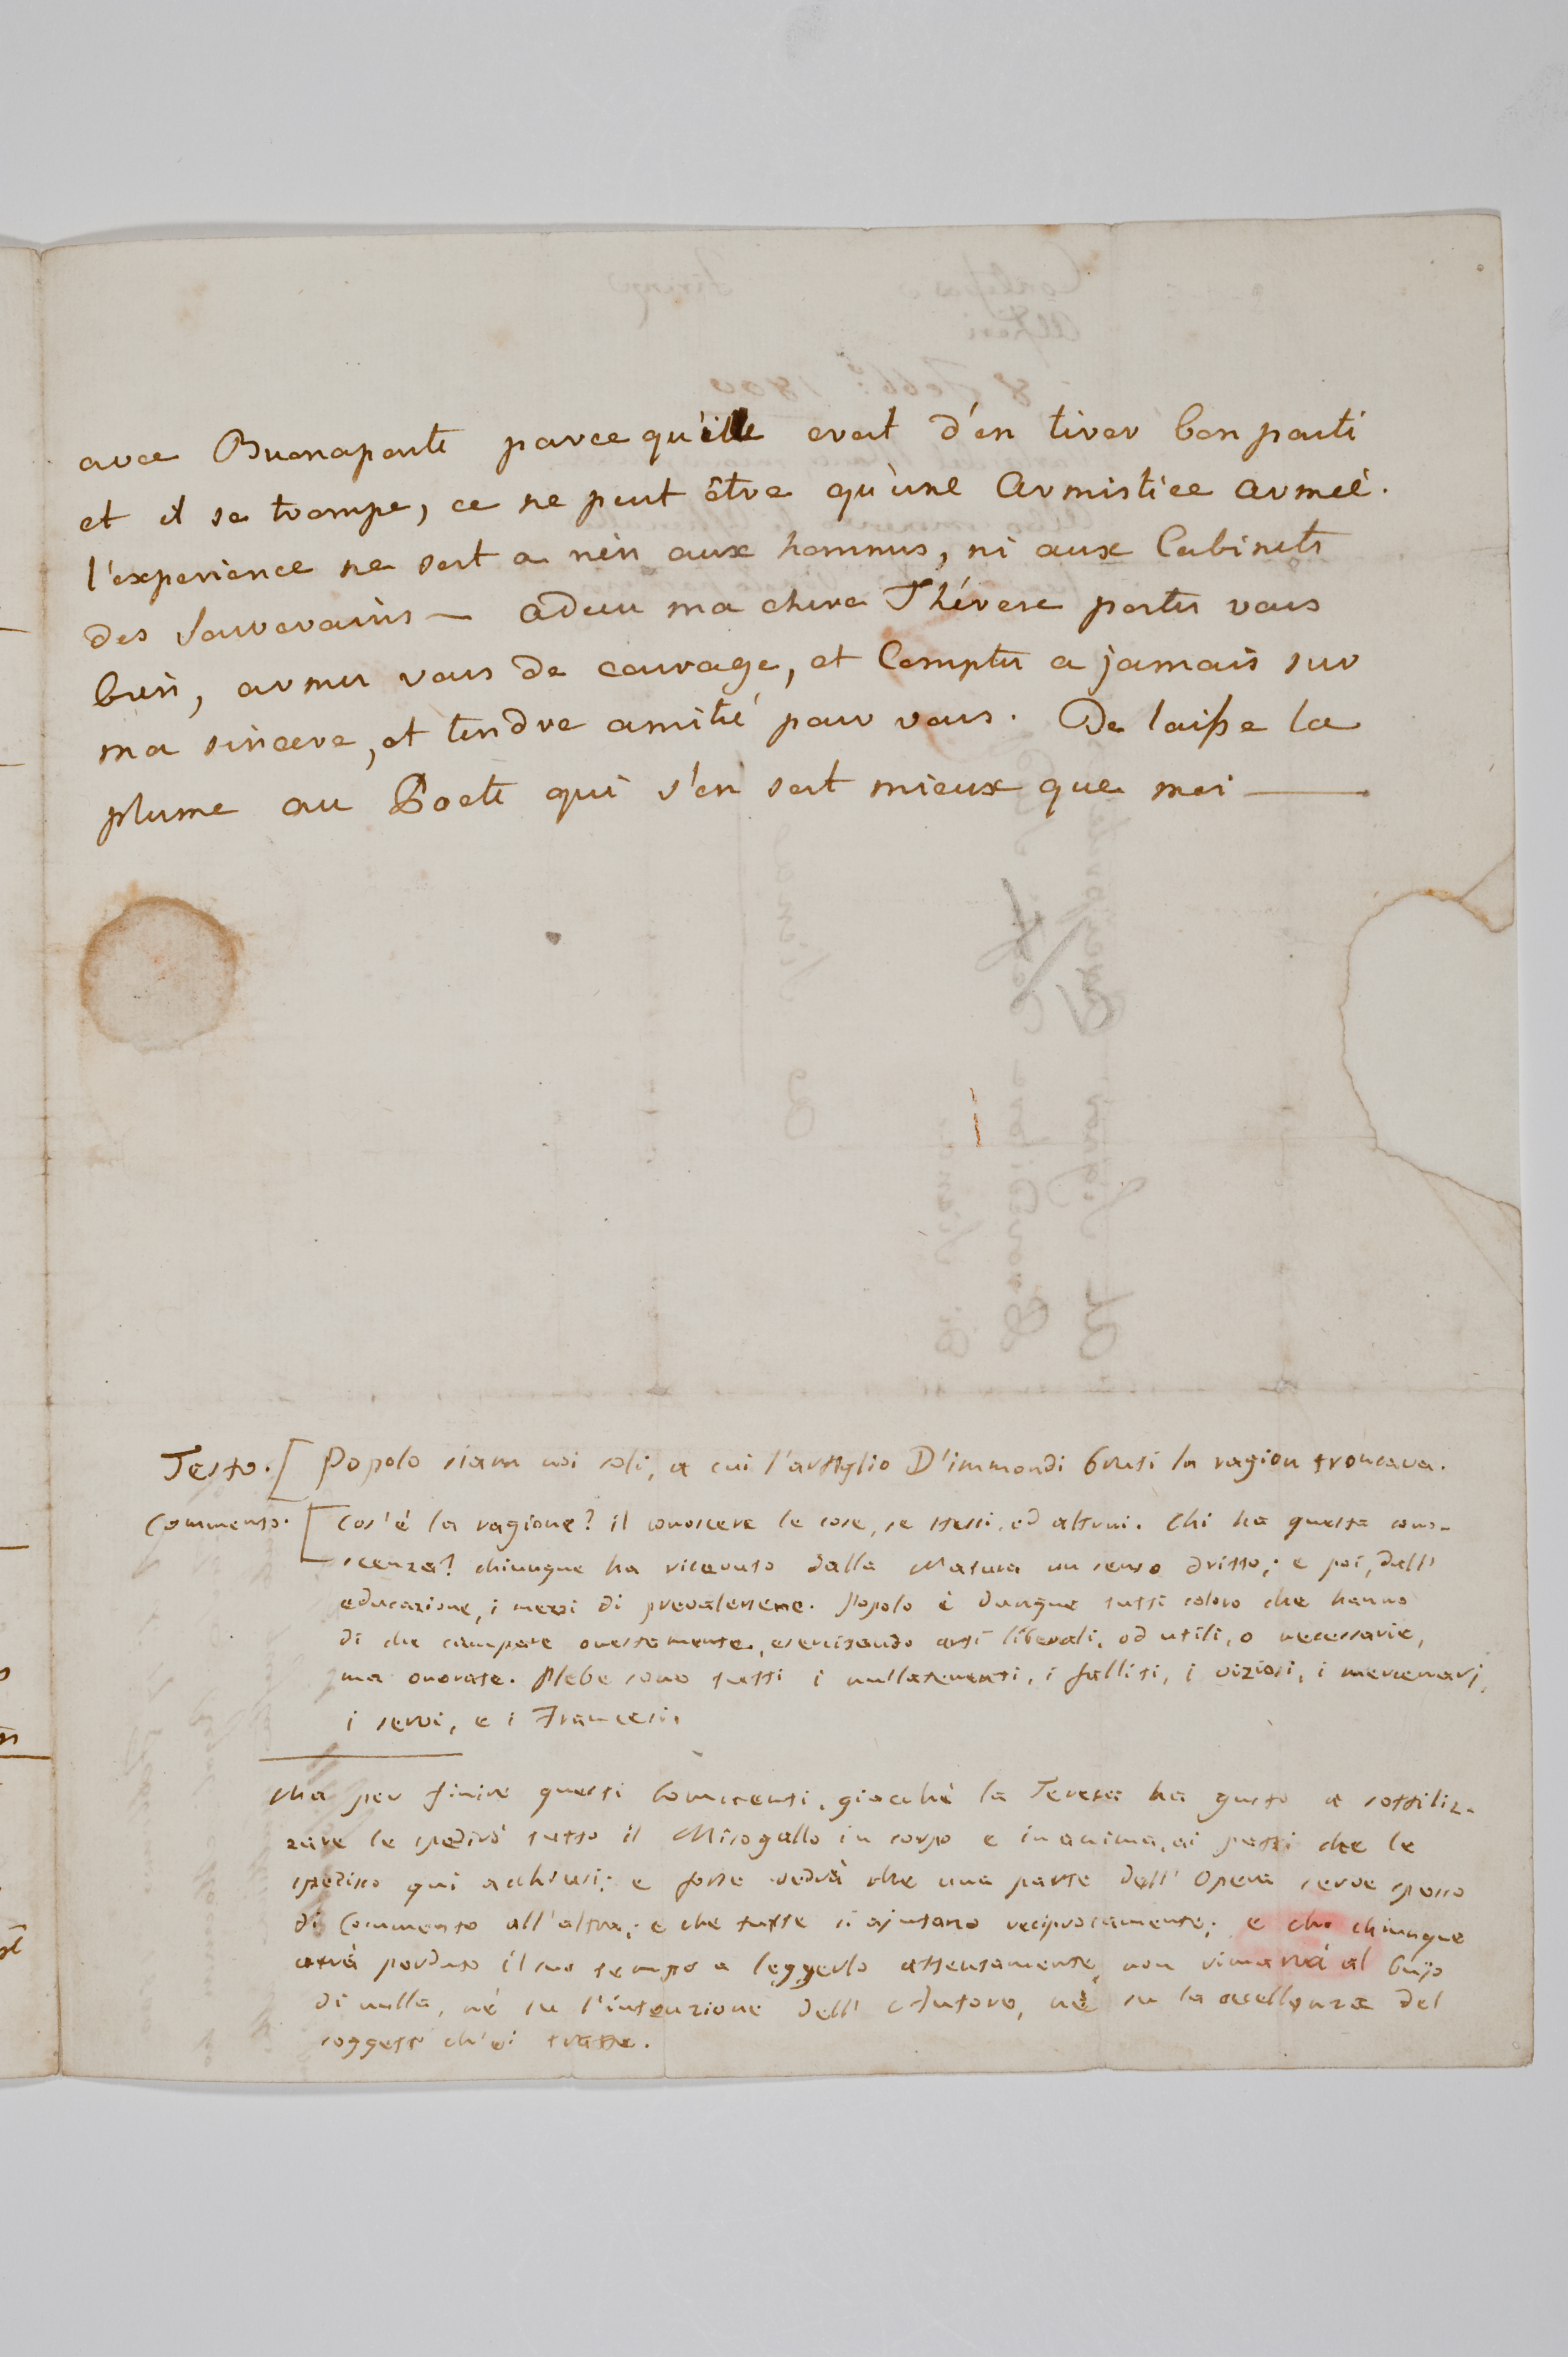 avec Buonaparte parce qu'ille croit d'en tirer bon parti
et il se trompe, ce ne peut être qu'une Armistice armeé.
l'experience ne sert a rien aux hommes, ni aux Cabinets
des Souverains — adieu ma chere Thérese portes vous
bien, armes vous de courage, et Comptes a jamais sur
ma sincere, et tendre amitié pour vous. Je laisse la
plume au Poete qui s'en sert mieux que moi —
Testo. [ Popolo siam noi soli, a cui l'artiglio D'immondi bruti la ragion troncava.
Commento. [ Cos'è la ragione? il conoscere le cose, se stessi, ed altrui. Chi ha questa cono-
scenza? chiunque ha ricevuto dalla Natura un senso dritto; e poi, dall'
educazione, i mezzi di prevalersene. Popolo è dunque tutti coloro che hanno
di che campare onestamente, esercitando arti liberali, od utili, o necessarie,
ma onorate. Plebe sono tutti i nullatenenti, i falliti, i viziosi, i mercenarj,
i servi, e i Francesi.
Ma per finire questi Commenti, giacchè la Teresa ha gusto a sottiliz-
zare le spedirò tutto il Misogallo in corpo e in anima, ai pezzi che le
spedisco qui acchiusi; e forse vedrà che una parte dell' Opera serve spesso
di Commento all'altra; e che tutte si ajutano reciprocamente; e che chiunque
avrà perduto il suo tempo a leggerlo attentamente, non rimarrà al bujo
di nulla, nè su l'intenzione dell' Autore, nè su la eccellenza del
soggetto ch'ei tratta.